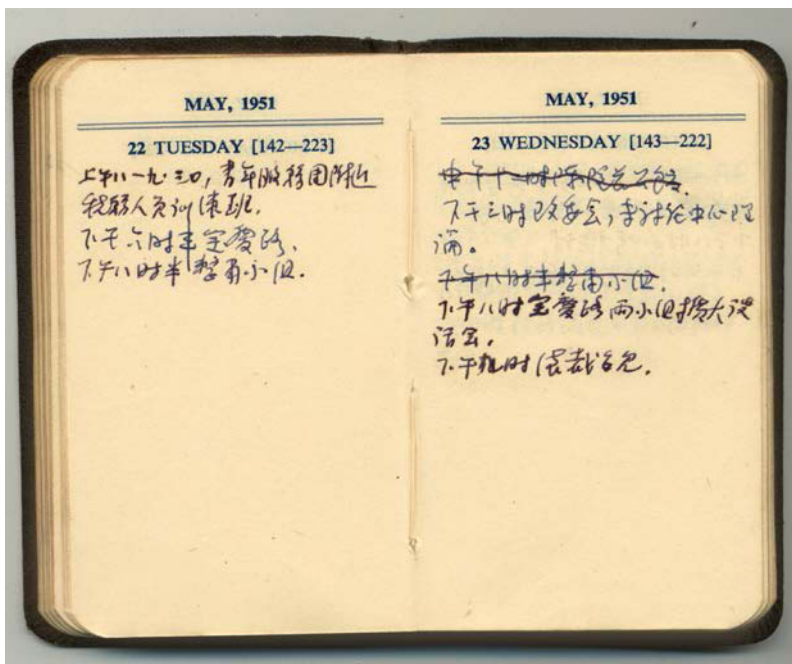 MAY, 1951
22 TUESDAY [142—223]
上午八一九·三〇,青年服务团附近
税务人员训练班.
下午六时半宝爱路.
下午八时半整南小组.
MAY, 1951
23 WEDNESDAY [143—222]
下午三时改委会,
论。
下午八时半整南小组.
下午八时宝爱路两小组扩大谈
话会.
下午九时